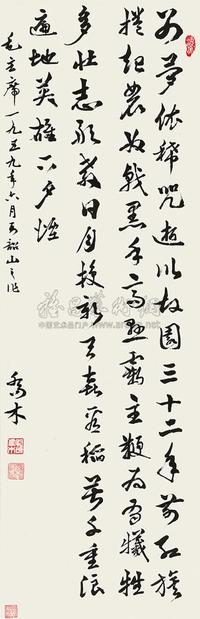 别夢依稀咒逝川故园三十二年前红旗
捲起農奴戟黑手高懸霸主鞭为有犧牲
多壮志敢教日月换新天喜看稻菽千重浪
遍地英雄下夕煙
毛主席一九五九年六月到韶山之作
喬木